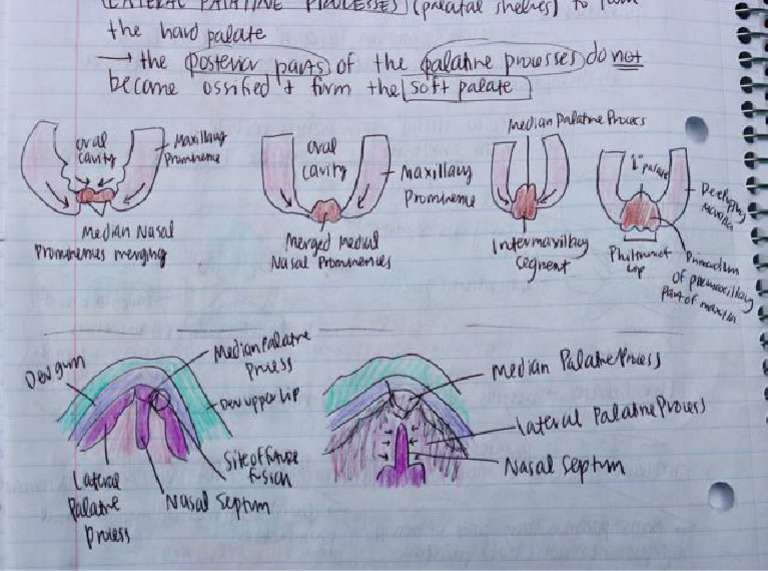 LATERAL PALATINE PROCESSES (palatal shelves) to form
the hard palate
→ the posterior parts of the palatine processes do not
become ossified + form the soft palate
oral
cavity
Maxillary
Prominence
Median Nasal
Prominences merging
oral
cavity
Maxillary
Prominence
Merged Medial
Nasal Prominences
Median Palatine Process
Intermaxillary
Segment
1° palate
Developing
maxilla
Philtrum of
lip
Primordium
of premaxillary
part of maxilla
Dev gum
Median Palatine
Process
Dev upper lip
Site of future
fusion
Lateral
Palatine
Process
Nasal Septum
Median Palatine Process
Lateral Palatine Process
Nasal Septum